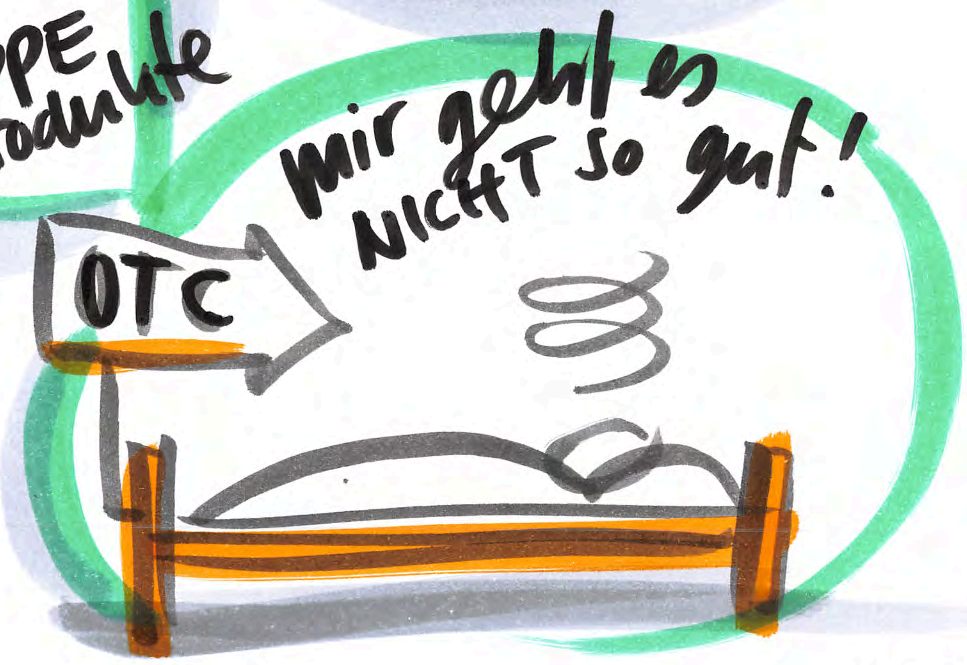 PPE
rodukte
mir geht es
NICHT so gut!
OTC